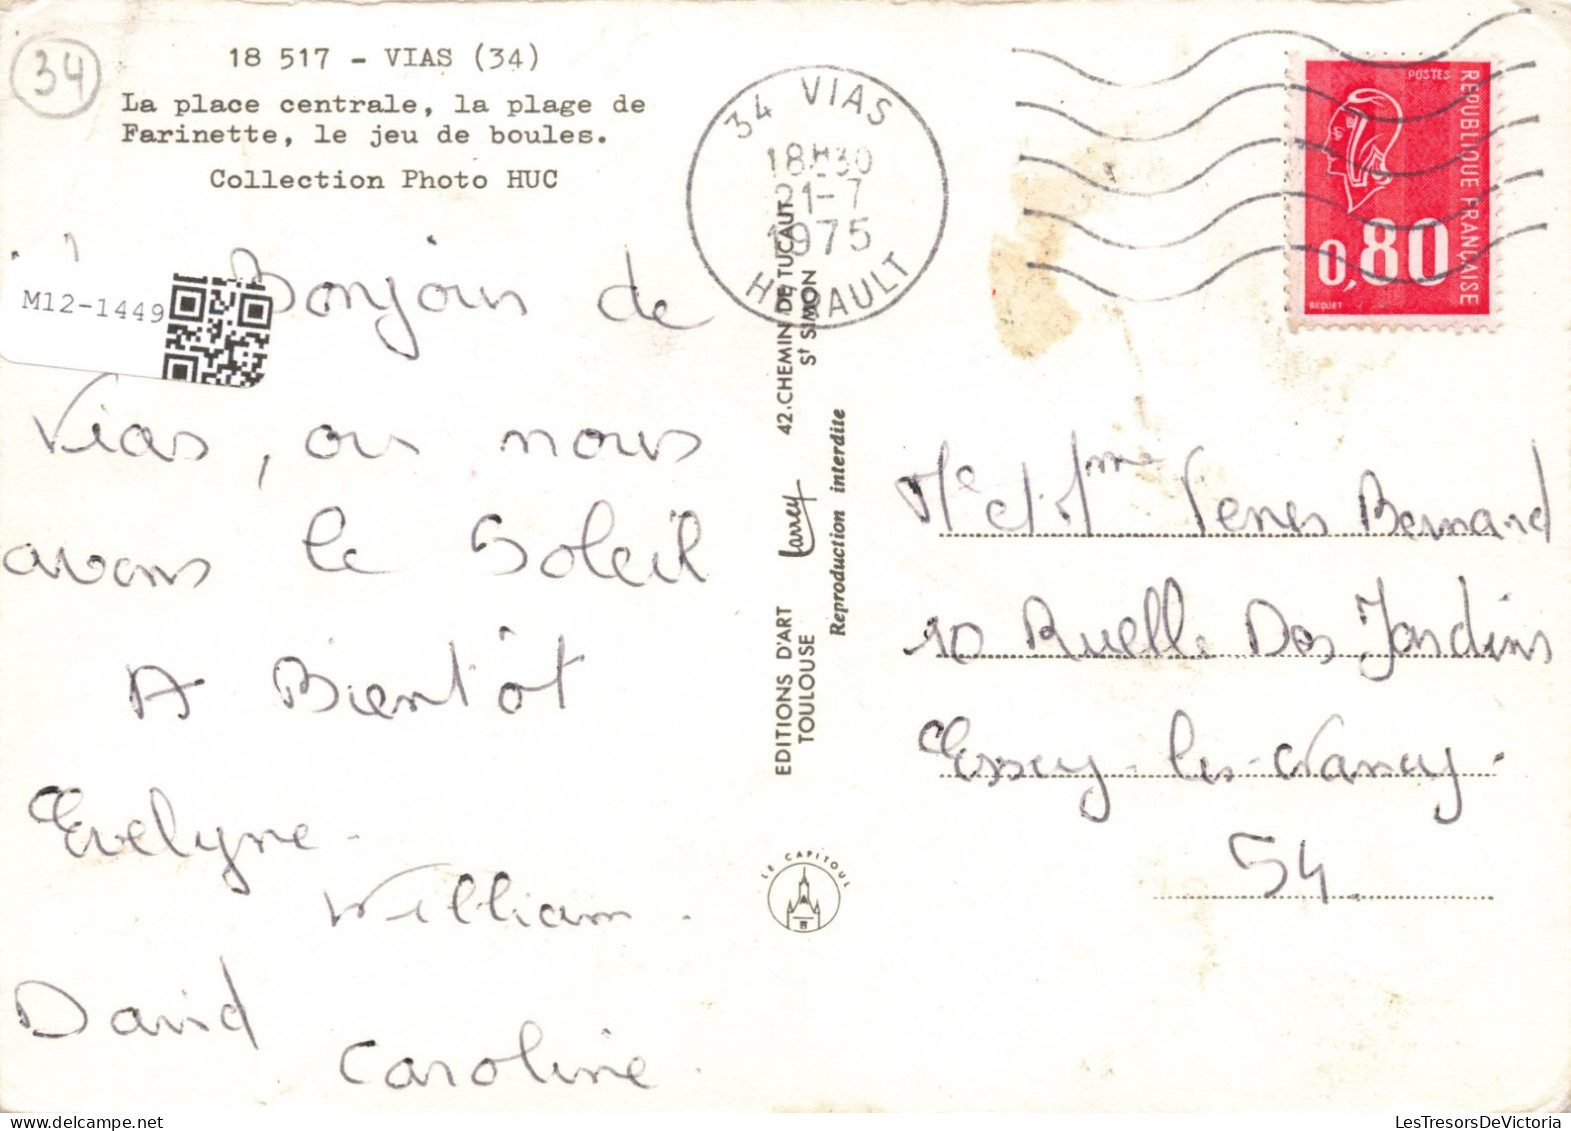 34
18 517 - VIAS (34)
La place centrale, la plage de
Farinette, le jeu de boules.
Collection Photo HUC
M12-1449
Bonjour de
Vias, ou nous
avons le Soleil
A Bientôt
Evelyne.
William.
David
Caroline.
EDITIONS D'ART Larrey 42.CHEMIN DE TUCAUT
TOULOUSE St SIMON
Reproduction interdite
LE CAPITOUL
34 VIAS
18H30
21-7
1975
HERAULT
POSTES
REPUBLIQUE FRANCAISE
0,80
BEQUET
Me et Mme Bernard
10 Ruelle Des Jardins
Essey-les-Nancy.
54.
LesTresorsDeVictoria.com